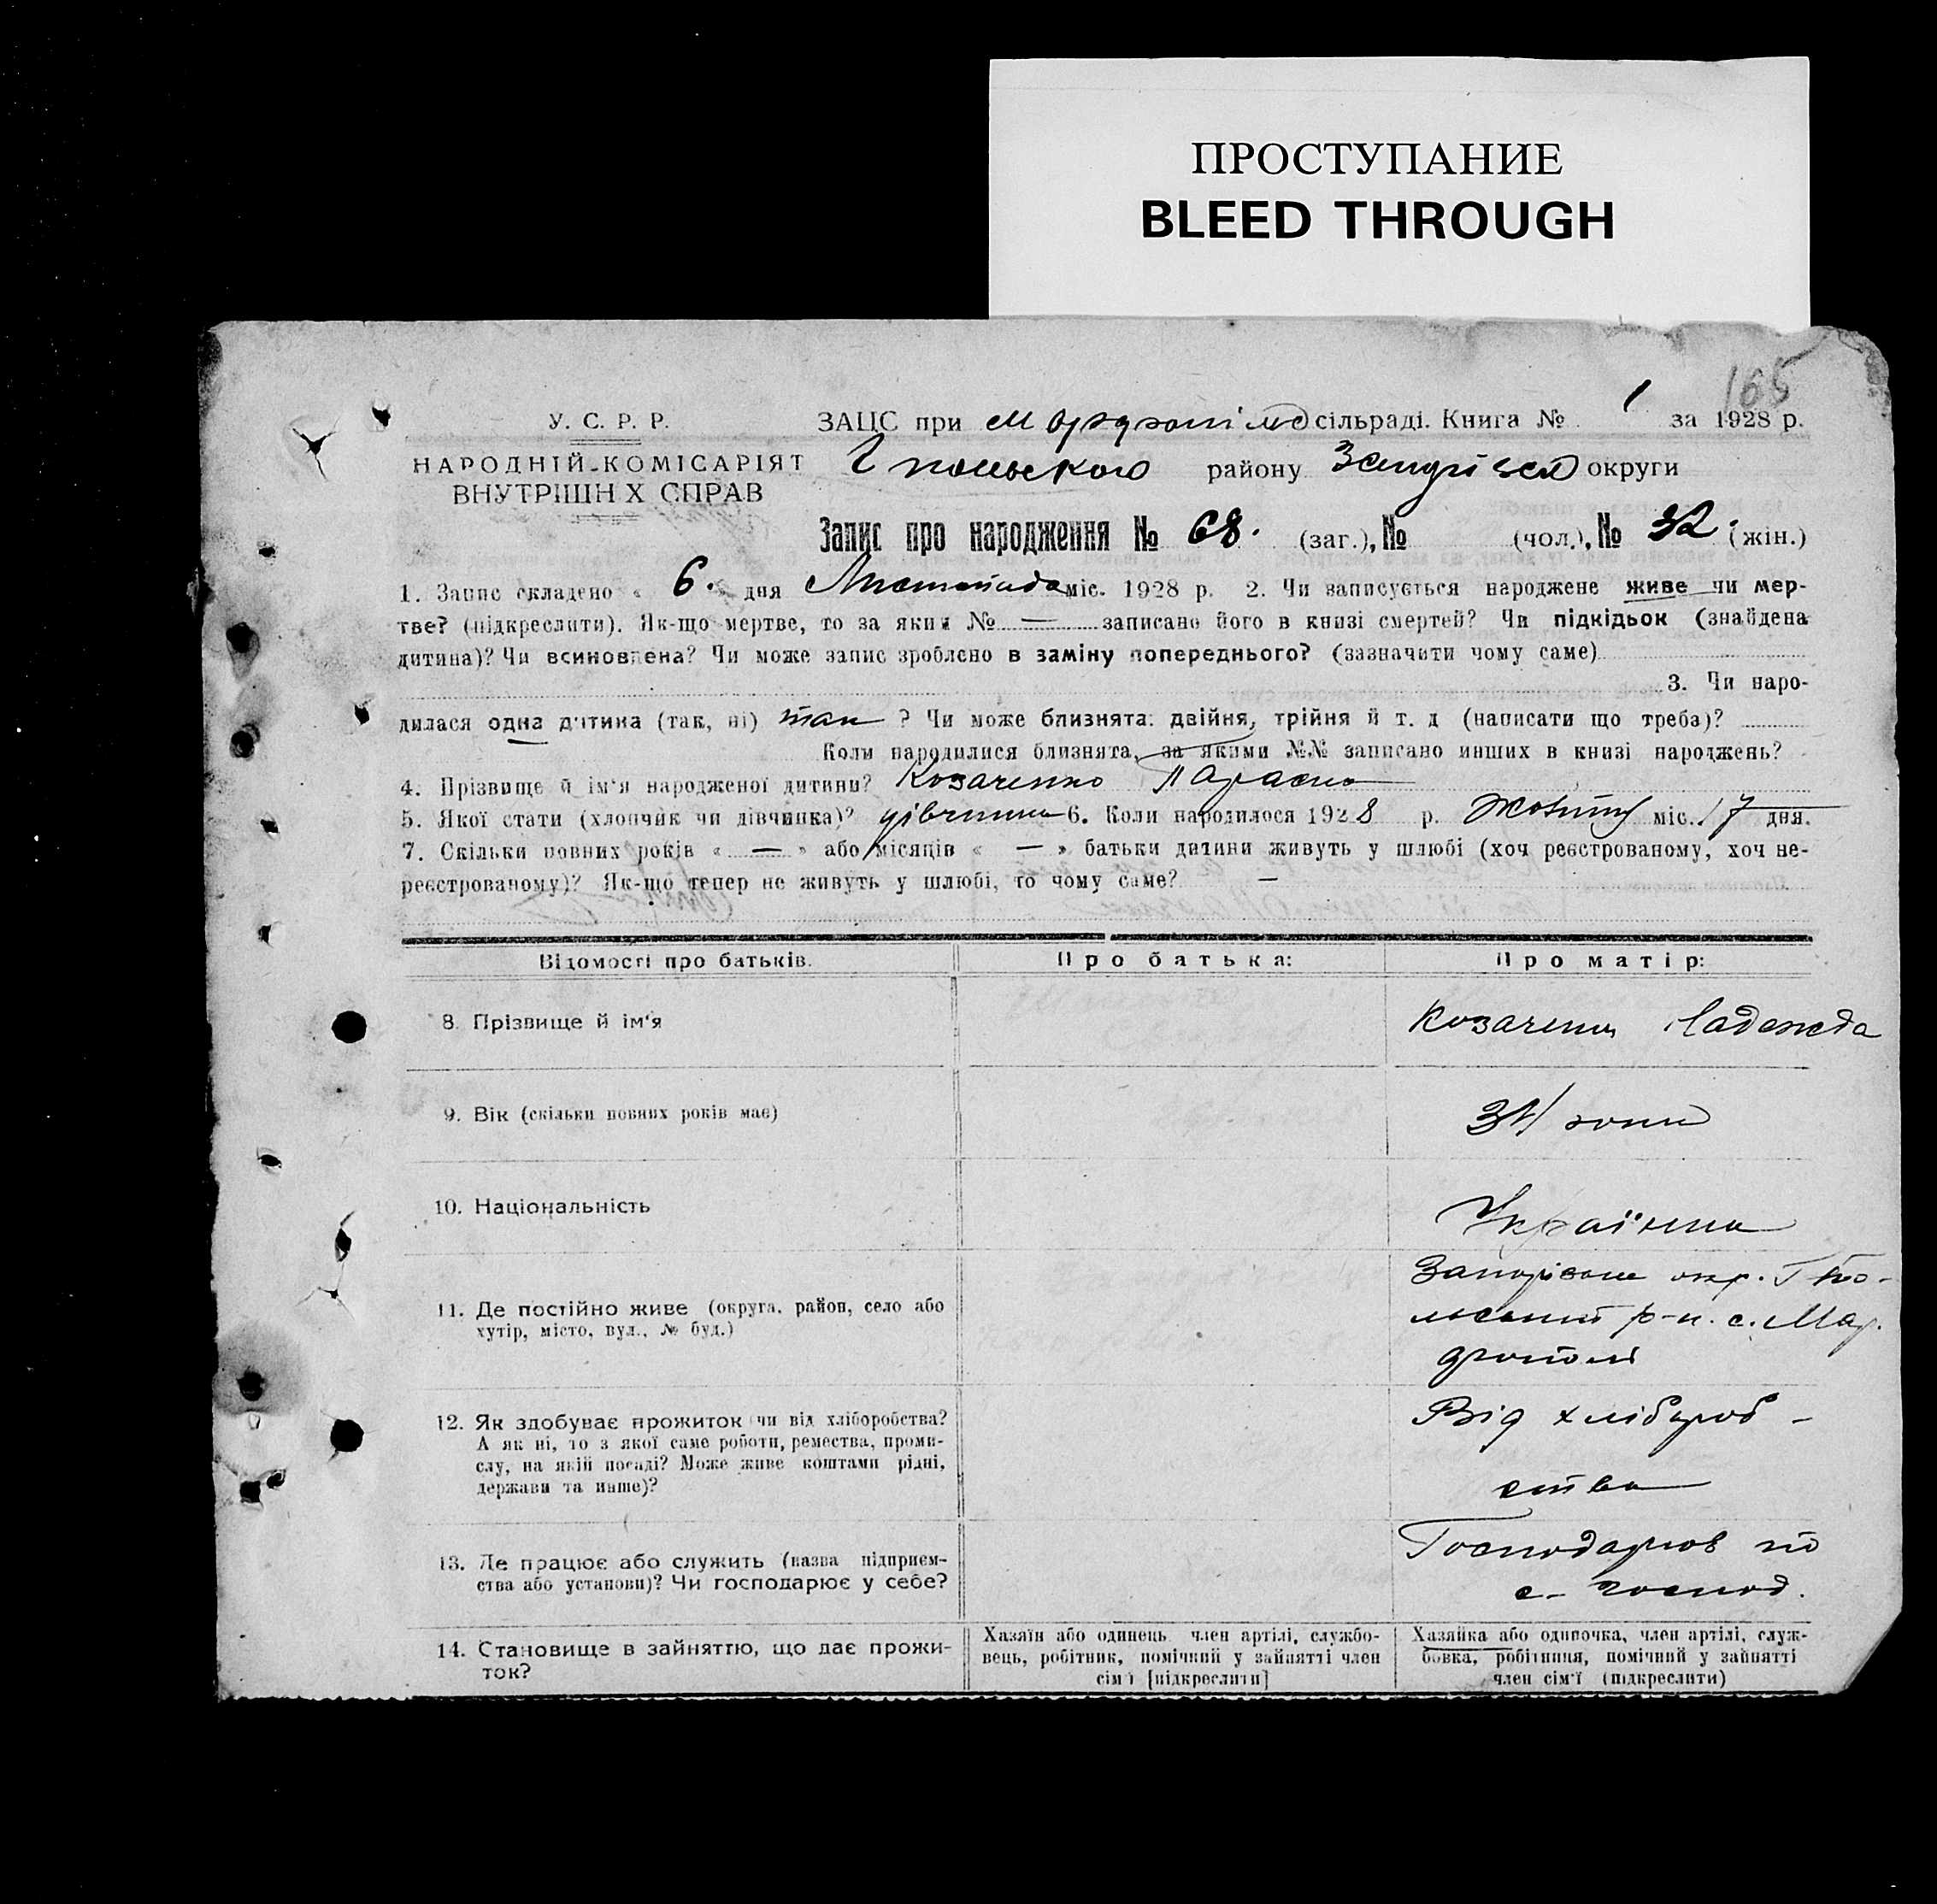 ПРОСТУПАНИЕ
BLEED THROUGH
165
У. С. Р. Р.
НАРОДНІЙ КОМІСАРІЯТ
ВНУТРІШН Х СПРАВ
ЗАЦС при сільраді. Книга № 1 за 1928 р.
району округи
Запис про народження № 68. (заг.), № (чол.), № 32. (жін.)
1. Запис складено « 6. » дня Листопада міс. 1928 р. 2. Чи записується народжене живе чи мер-
тве? (підкреслити). Як-що мертве, то за яким № — записано його в книзі смертей? Чи підкідьок (знайдена
дитина)? Чи всиновлена? Чи може запис зроблено в заміну попереднього? (зазначити чому саме)
3. Чи наро-
дилася одна дитина (так, ні) так ? Чи може близнята: двійня, трійня й т. д (написати що треба)?
Коли народилися близнята, за якими №№ записано инших в книзі народжень?
4. Прізвище й ім'я народженої дитини? Козаченко Параска
5. Якої стати (хлопчик чи дівчинка)? дівчинка 6. Коли народилося 1928 р. Жовтня міс. 17 дня.
7. Скільки повних років « — » або місяців « — » батьки дитини живуть у шлюбі (хоч реєстрованому, хоч не-
реєстрованому)? Як-що тепер не живуть у шлюбі, то чому саме? —
Відомості про батьків. Про батька: Про матір:
8. Прізвище й ім'я Козаченко Надежда
9. Вік (скільки повних років має) роки
10. Національність Українка
11. Де постійно живе (округа, район, село або
хутір, місто, вул., № буд.)
Запорізьке окр. Г. По-
льський р-н. с. Мар.
дрополі
12. Як здобуває прожиток чи від хліборобства?
А як ні, то з якої саме роботи, ремества, проми-
слу, на якій посаді? Може живе коштами рідні,
держави та инше)?
Від хлібороб-
ства
13. Де працює або служить (назва підприєм-
ства або установи)? Чи господарює у себе?
по
с- господ.
14. Становище в зайняттю, що дає прожи-
ток?
Хазяїн або одинець, член артілі, службо-
вець, робітник, помічний у зайнятті член
сім'ї [підкреслити]
Хазяйка або одиночка, член артілі, служ-
бовка, робітниця, помічний у зайнятті
член сім'ї (підкреслити)